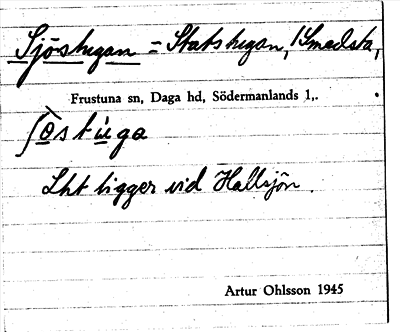 Sjöstugan = Statstugan, /Smedsta,
Frustuna sn, Daga hd, Södermanlands l,.
ʃöstùga
Lht ligger vid Hallsjön.
Artur Ohlsson 1945